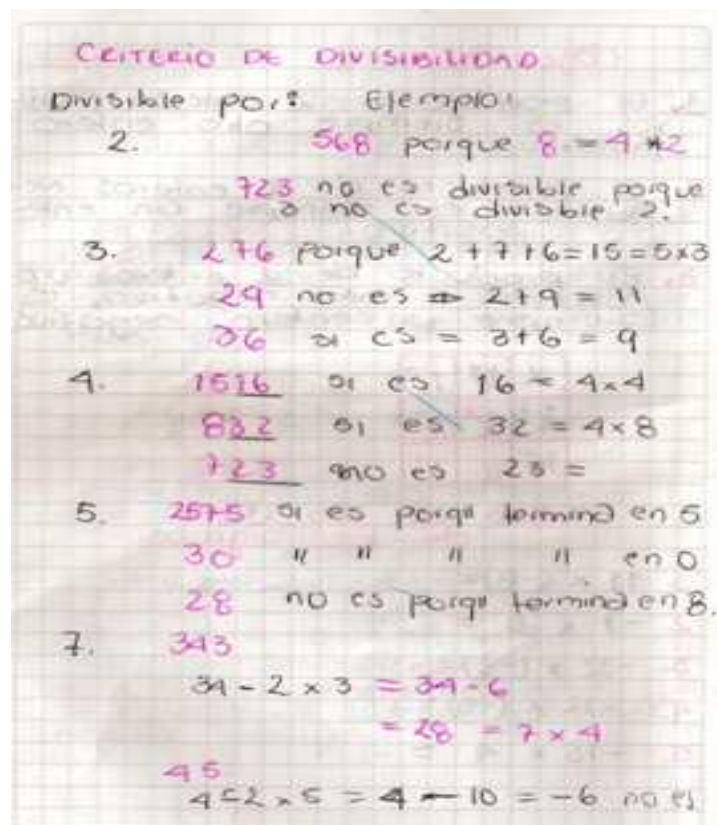 CRITERIO DE DIVISIBILIDAD
Divisible por: Ejemplo:
2. 568 porque 8 = 4 x 2
723 no es divisible porque
3 no es divisible 2.
3. 276 porque 2 + 7 + 6 = 15 = 5x3
29 no es = 2+9 = 11
36 si es = 3+6 = 9
4. 1516 si es 16 = 4x4
832 si es 32 = 4x8
723 no es 23 =
5. 2575 si es porq termina en 5
30 " " " " en 0
28 no es porq termina en 8.
7. 343
34 - 2 x 3 = 34 - 6
= 28 = 7 x 4
45
4-2x5 = 4 - 10 = -6 no es